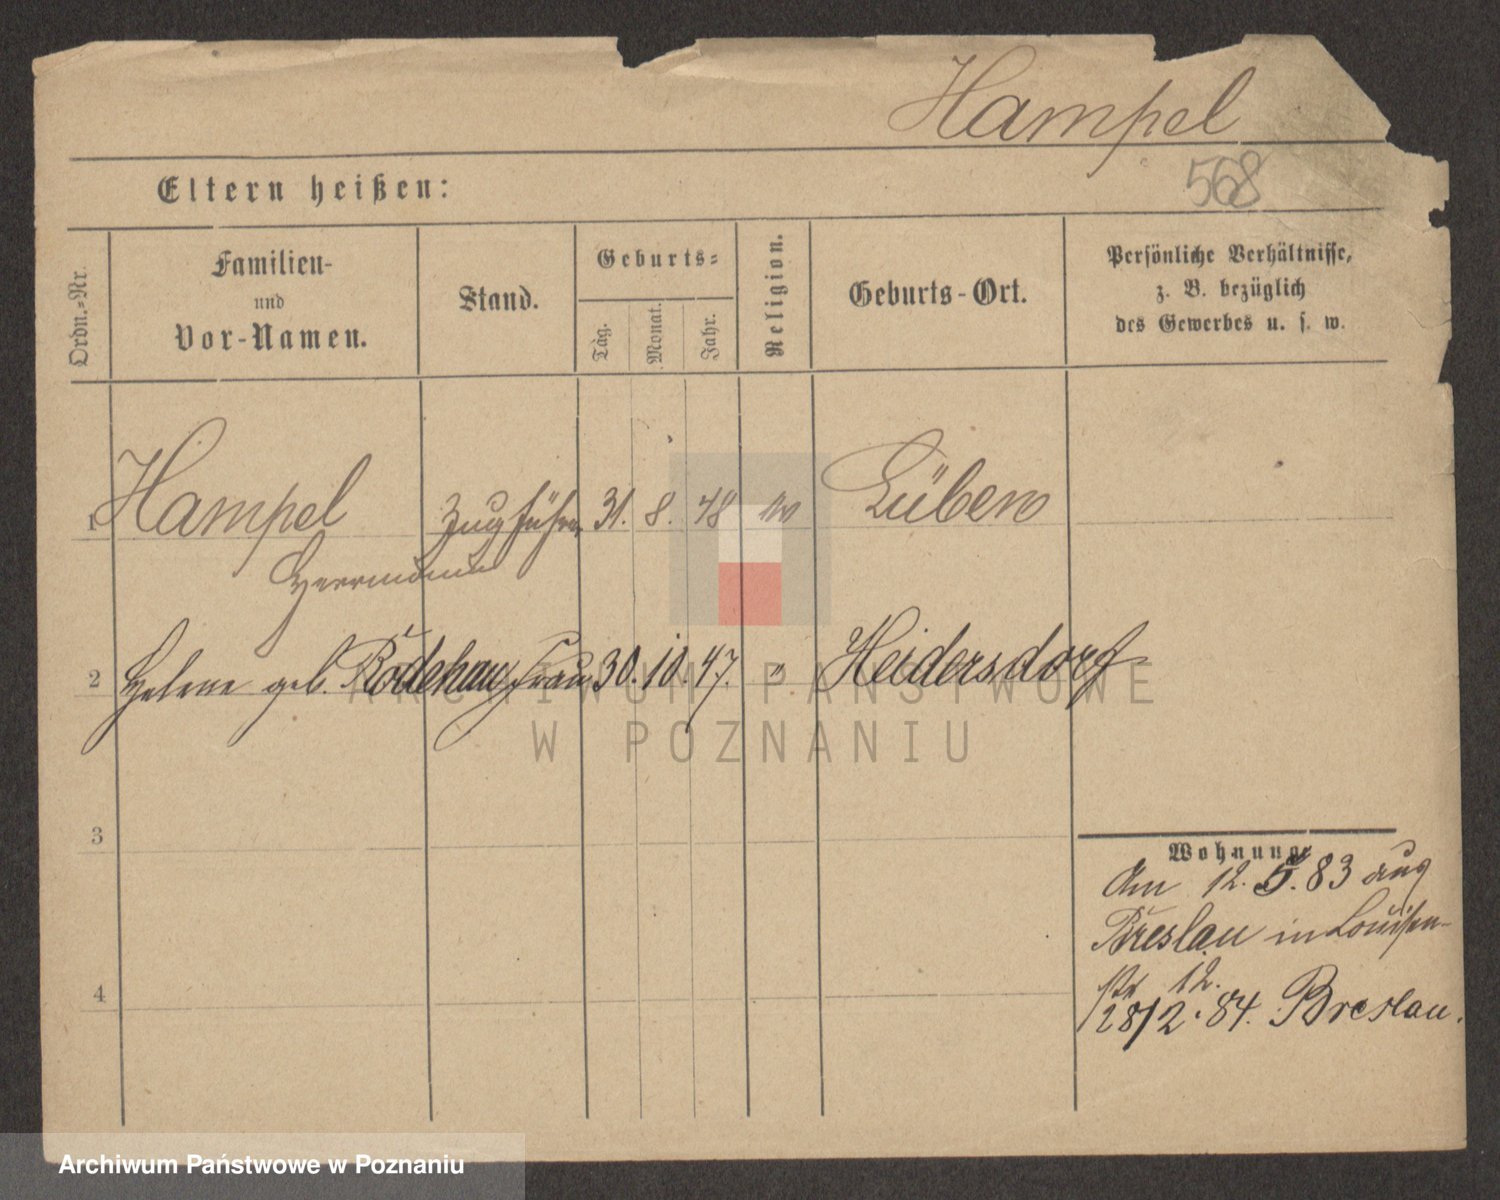 Hampel
568
Eltern heißen:
Ordn.-Nr.
Familien-
und
Vor-Namen.
Stand.
Geburts-
Tag.
Monat.
Jahr.
Religion.
Geburts-Ort.
Persönliche Verhältnisse,
z. B. bezüglich
des Gewerbes u. s. w.
1 Hampel Zugführer 31. 8. 48 ev Lüben
Herrmann
2 Helene geb. Rodehau Frau 30. 10. 47. " Heidersdorf
3
4
Wohnung
Am 12. 5. 83 aus
Breslau in Louisen-
str 12.
28/2. 84. Breslau.
ARCHIWUM PAŃSTWOWE
W POZNANIU
Archiwum Państwowe w Poznaniu